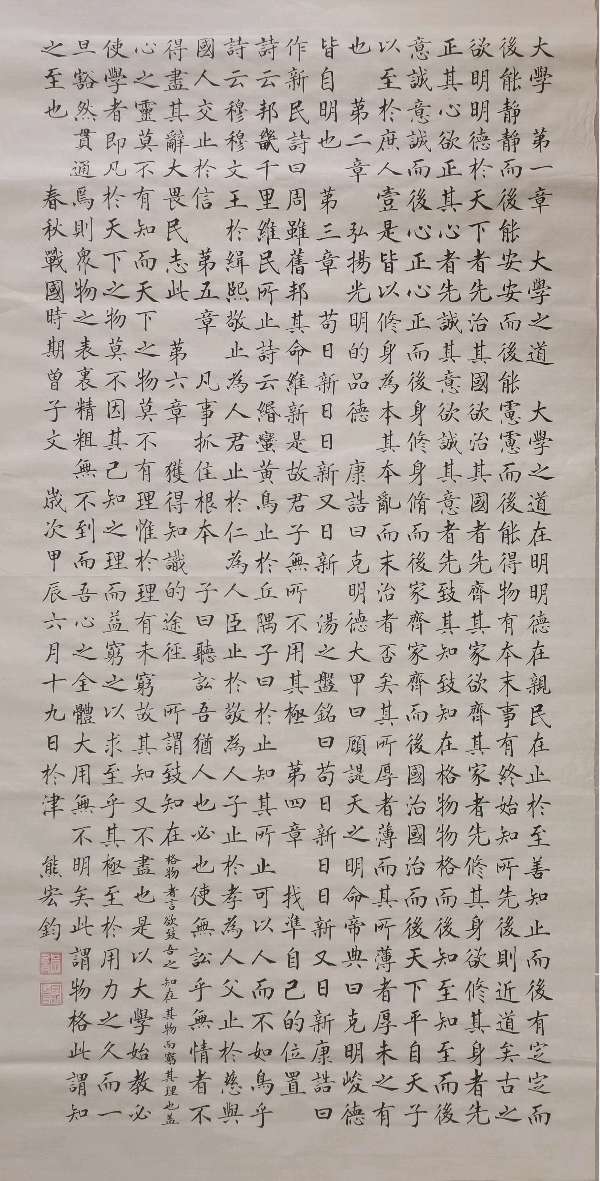 大學　第一章　大學之道　大學之道在明明德在親民在止於至善知止而後有定定而
後能静静而後能安安而後能慮慮而後能得物有本末事有終始知所先後則近道矣古之
欲明明德於天下者先治其國欲治其國者先齊其家欲齊其家者先修其身欲修其身者先
正其心欲正其心者先誠其意欲誠其意者先致其知致知在格物物格而後知至知至而後
意誠意誠而後心正心正而後身修身脩而後家齊家齊而後國治國治而後天下平自天子
以至於庶人壹是皆以修身為本其本亂而末治者否矣其所厚者薄而其所薄者厚未之有
也　第二章　弘揚光明的品德　康誥曰克明德大甲曰顧諟天之明命帝典曰克明峻德
皆自明也　第三章　苟日新日日新又日新　湯之盤銘曰苟日新日日新又日新康誥曰
作新民詩曰周雖舊邦其命維新是故君子無所不用其極　第四章　找準自己的位置
詩云邦畿千里維民所止詩云緡蠻黄鳥止於丘隅子曰於止知其所止可以人而不如鳥乎
詩云穆穆文王於緝熙敬止為人君止於仁為人臣止於敬為人子止於孝為人父止於慈與
國人交止於信　第五章　凡事抓住根本　子曰聽訟吾猶人也必也使無訟乎無情者不
得盡其辭大畏民志此　第六章　獲得知識的途徑　所謂致知在格物者言欲致吾之知在其物而窮其理也蓋
心之靈莫不有知而天下之物莫不有理惟於理有未窮故其知又不盡也是以大學始教必
使學者即凡於天下之物莫不因其已知之理而益窮之以求至乎其極至於用力之久而一
旦豁然貫通焉則衆物之表裏精粗無不到而吾心之全體大用無不明矣此謂物格此謂知
之至也　春秋戰國時期曾子文　歲次甲辰六月十九日於津　熊宏鈞